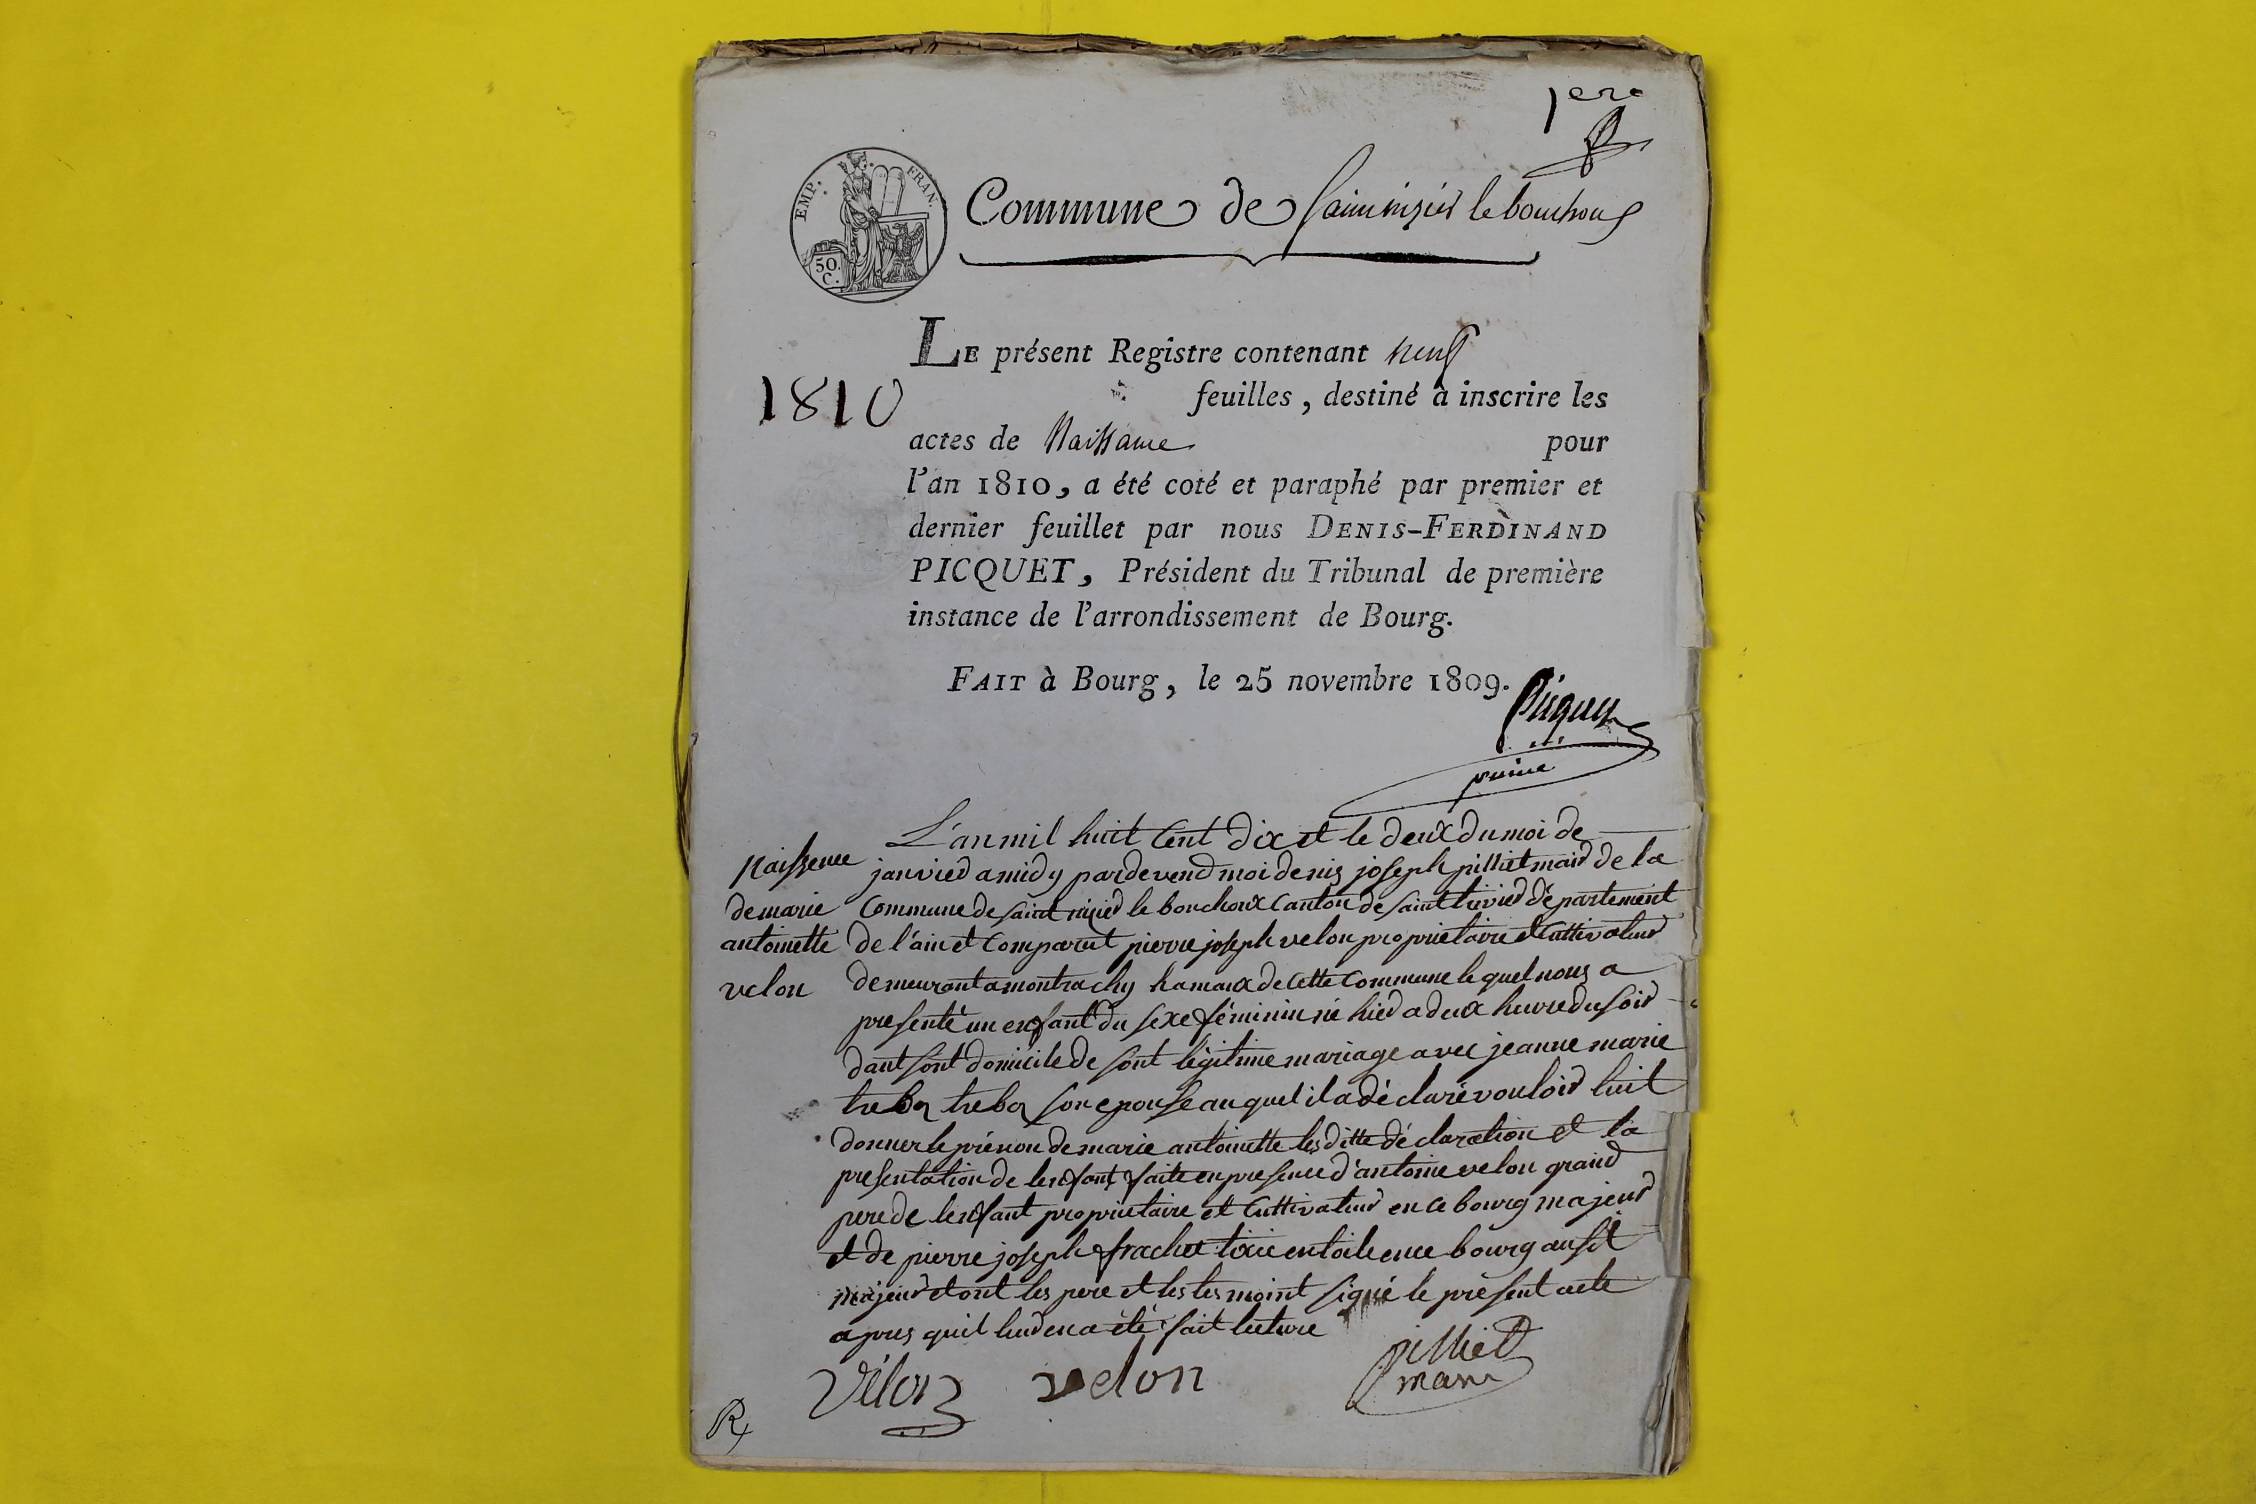 1ere
EMP. FRAN.
50.
C.
Commune de Saint nizier le bouchoux
LE présent Registre contenant neuf
1810
feuilles, destiné à inscrire les
actes de Naissance pour
l'an 1810, a été coté et paraphé par premier et
dernier feuillet par nous DENIS-FERDINAND
PICQUET, Président du Tribunal de première
instance de l'arrondissement de Bourg.
FAIT à Bourg, le 25 novembre 1809.
Picquet
Naissence
de marie
antoinette
velon
L'an mil huit Cent dix et le deux du moi de
janvier a midy pardevend moi denis joseph pilliet mair de la
Commune de saint nizier le bouchoux Canton de saint trivier département
de l'ain et Comparut pierre joseph velon proprietaire et Cultivateur
demeurant a montrachy hamaux de Cette Commune le quel nous a
presenté un enfant du sexe féminin né hier a deux heure du soir
dant sont domicile de sont légitime mariage avec jeanne marie
treboz treboz son epouse au quel il a déclaré vouloir luit
donner le prénon de marie antoinette les ditte déclaration et la
presentation de lenfant faite en presence d'antoine velon grand
pere de lenfant proprietaire et Cultivateur en ce bourg majeur
et de pierre joseph frachet tixie en toile en ce bourg ausit
majeur et ont les pere et les tesmoint signé le présent acte
apres quil leur en a été fait lecture
Vélon velon pilliet
mair
R